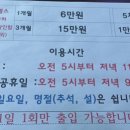 1개월 6만원
3개월 15만원 1만
이용시간
오전 5시부터 저녁
공휴일 : 오전 5시부터 저녁 9
일요일, 명절(추석, 설)은 쉽니
1일 1회만 출입 가능합니